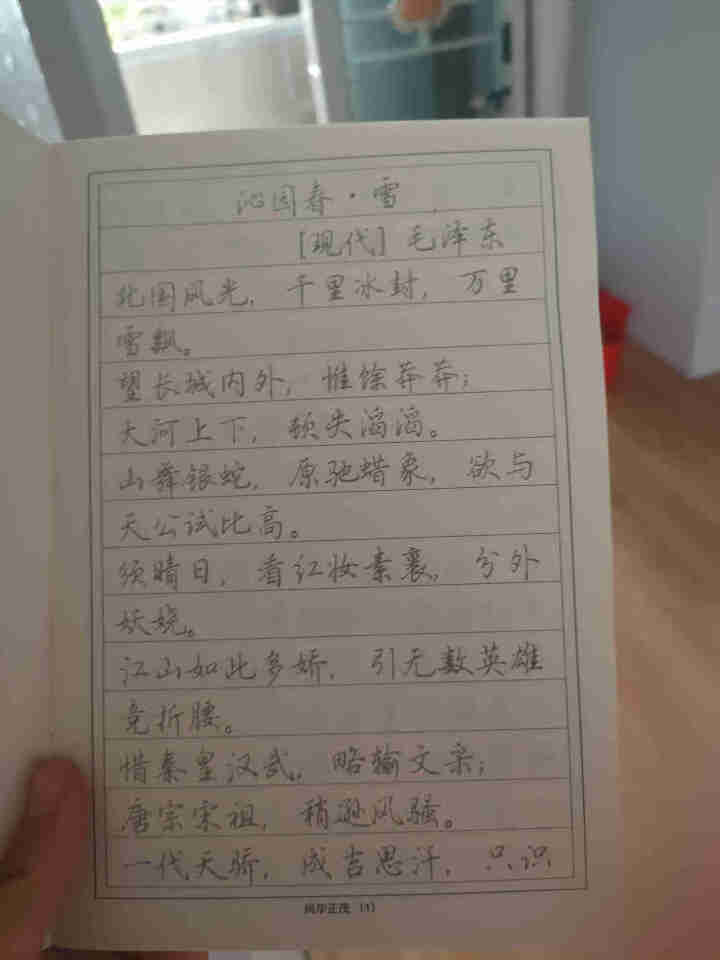 沁园春·雪
[现代] 毛泽东
北国风光，千里冰封，万里
雪飘。
望长城内外，惟馀莽莽；
大河上下，顿失滔滔。
山舞银蛇，原驰蜡象，欲与
天公试比高。
须晴日，看红妆素裹，分外
妖娆。
江山如此多娇，引无数英雄
竞折腰。
惜秦皇汉武，略输文采；
唐宗宋祖，稍逊风骚。
一代天骄，成吉思汗，只识
风华正茂（1）